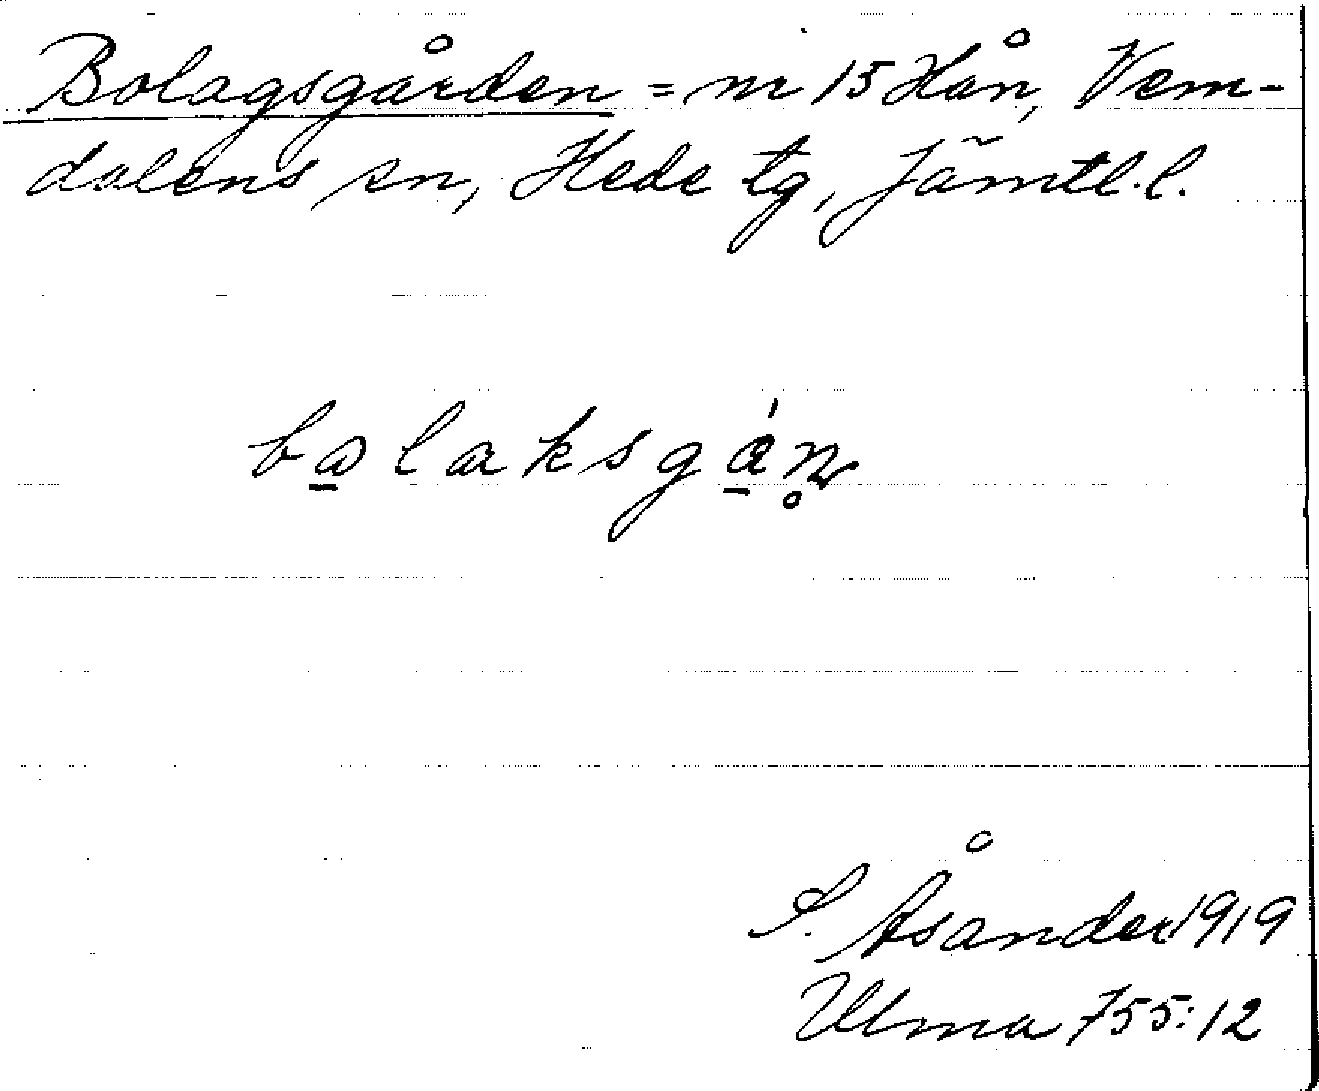 Bolagsgården = nr 15 Hån, Vem-
dalens sn, Hede tg, Jämtl.l.
bɷlaksgá̱n̥
S. Åsander 1919
Ulma 755:12